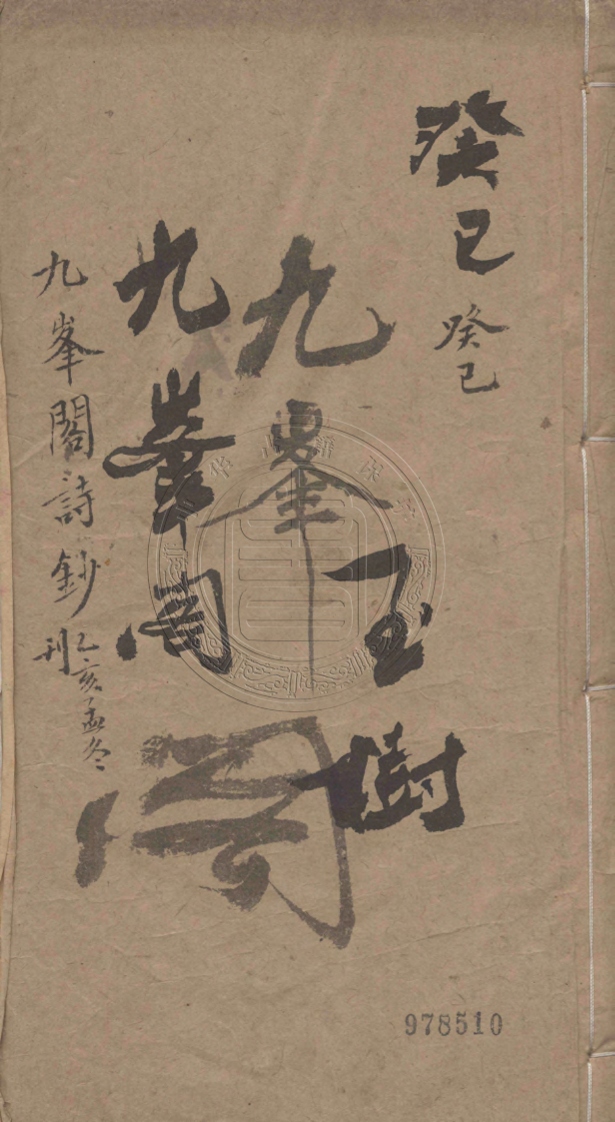 癸巳
癸巳
玉樹
九峯閣
九峯閣
九峯閣詩鈔
乙亥孟冬
刊
978510